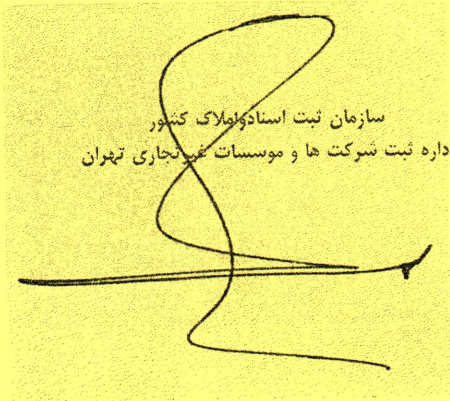 سازمان ثبت اسنادواملاک کشور
داره ثبت شرکت ها و موسسات غیرتجاری تهران